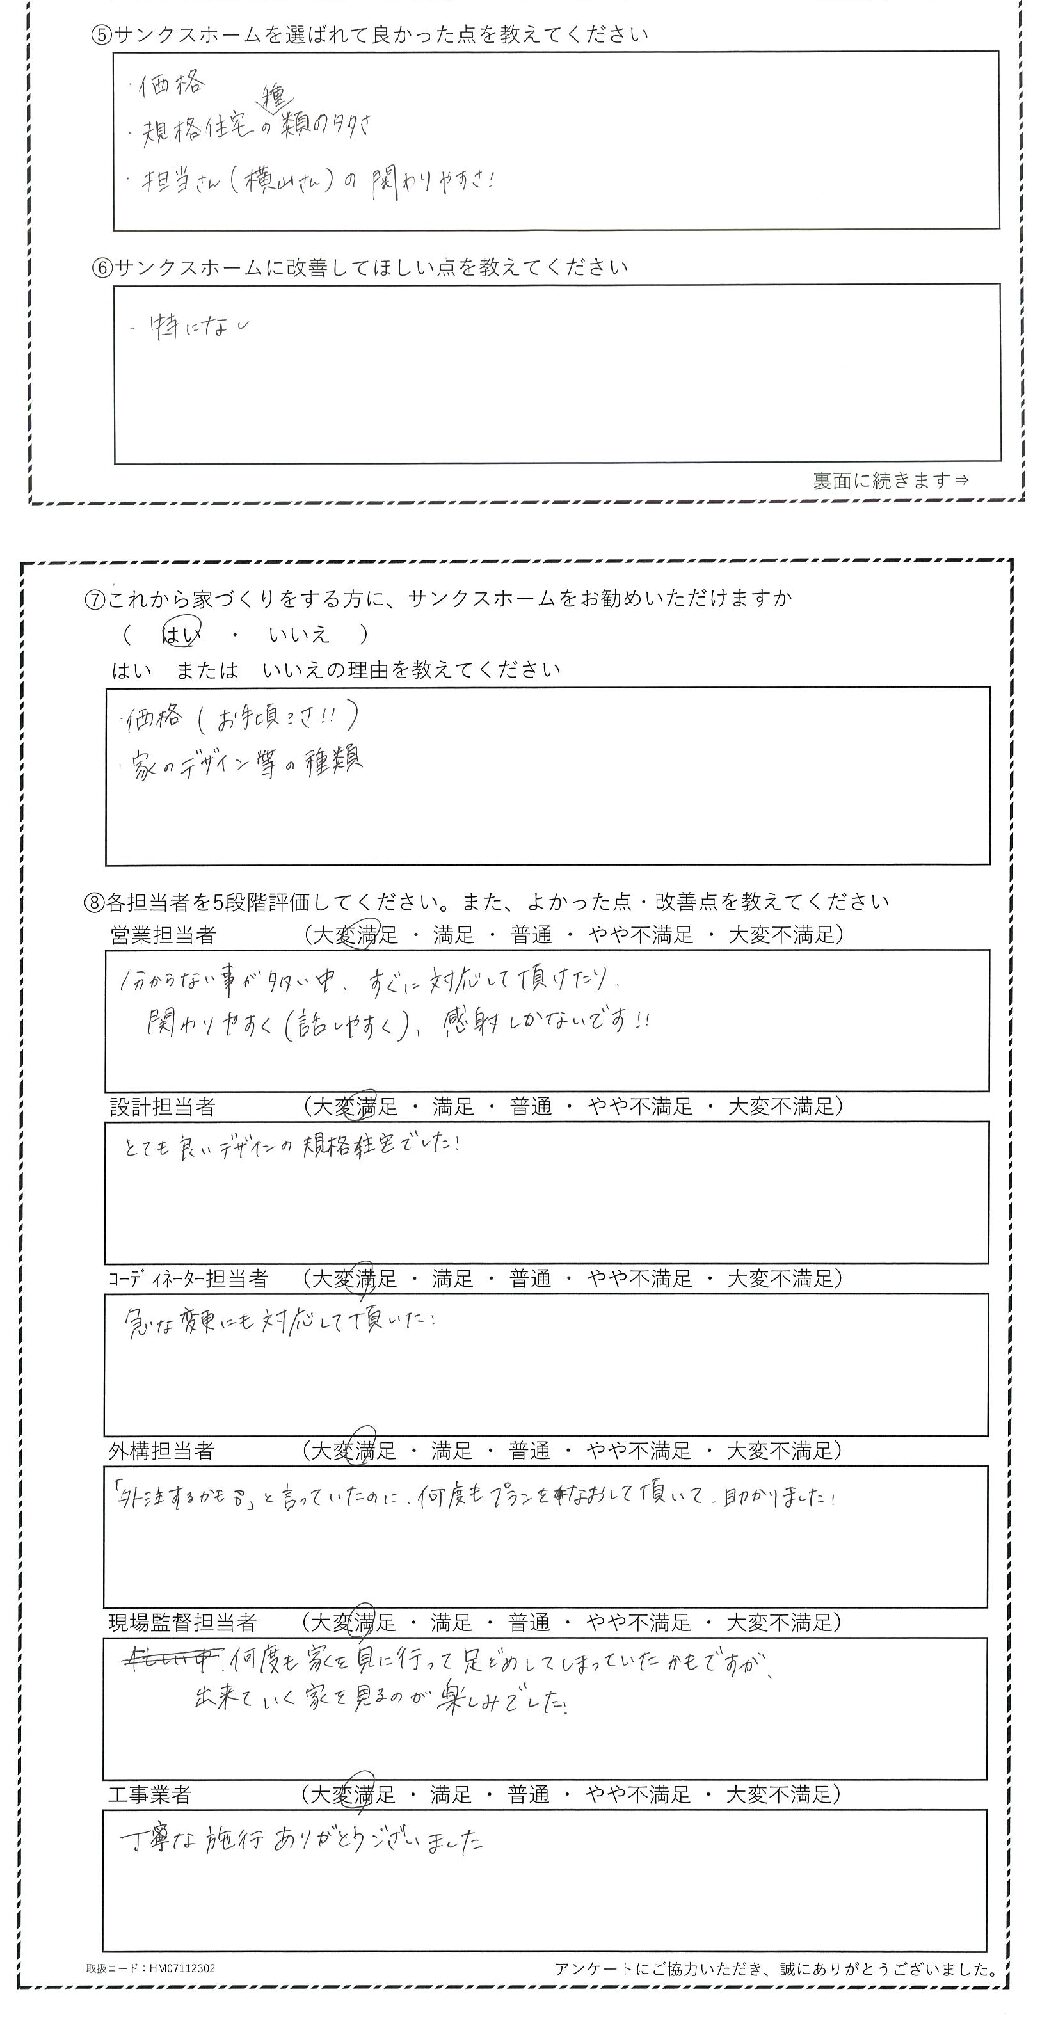 ⑤サンクスホームを選ばれて良かった点を教えてください
・価格
・規格住宅の種類の多さ
・担当さん(横山さん)の関わりやすさ!
⑥サンクスホームに改善してほしい点を教えてください
・特になし
裏面に続きます⇒
⑦これから家づくりをする方に、サンクスホームをお勧めいただけますか
( はい ・ いいえ )
はい または いいえの理由を教えてください
・価格(お手頃さ!!)
・家のデザイン等の種類
⑧各担当者を5段階評価してください。また、よかった点・改善点を教えてください
営業担当者 (大変満足・満足・普通・やや不満足・大変不満足)
分からない事が多い中、すぐに対応して頂けたり、
関わりやすく(話しやすく)、感射しかないです!!
設計担当者 (大変満足・満足・普通・やや不満足・大変不満足)
とても良いデザインの規格住宅でした!
コーディネーター担当者 (大変満足・満足・普通・やや不満足・大変不満足)
急な変更にも対応して頂いた!
外構担当者 (大変満足・満足・普通・やや不満足・大変不満足)
「外注するかも」と言っていたのに、何度もプランをなおして頂いて、助かりました!
現場監督担当者 (大変満足・満足・普通・やや不満足・大変不満足)
何度も家を見に行って足どめしてしまっていたかもですが、
出来ていく家を見るのが楽しみでした!
工事業者 (大変満足・満足・普通・やや不満足・大変不満足)
丁寧な施行ありがとうございました
取扱コード：HM07112302
アンケートにご協力いただき、誠にありがとうございました。